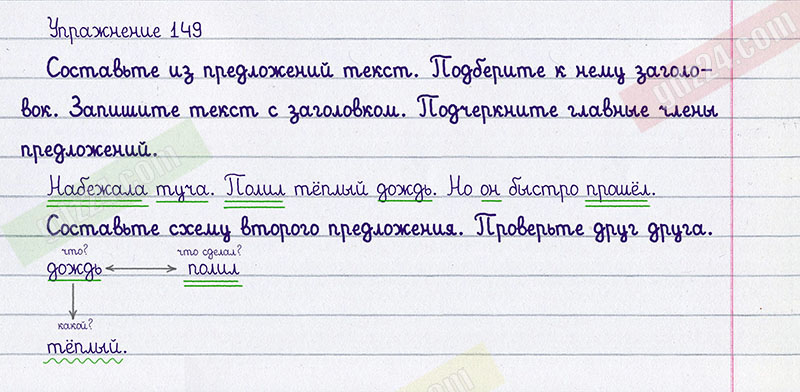 Упражнение 149
Составьте из предложений текст. Подберите к нему заголо-
вок. Запишите текст с заголовком. Подчеркните главные члены
предложений.
Набежала туча. Полил тёплый дождь. Но он быстро прошёл.
Составьте схему второго предложения. Проверьте друг друга.
что? что сделал?
дождь полил
какой?
тёплый.
gdz24.com
gdz24.com
gdz24.com